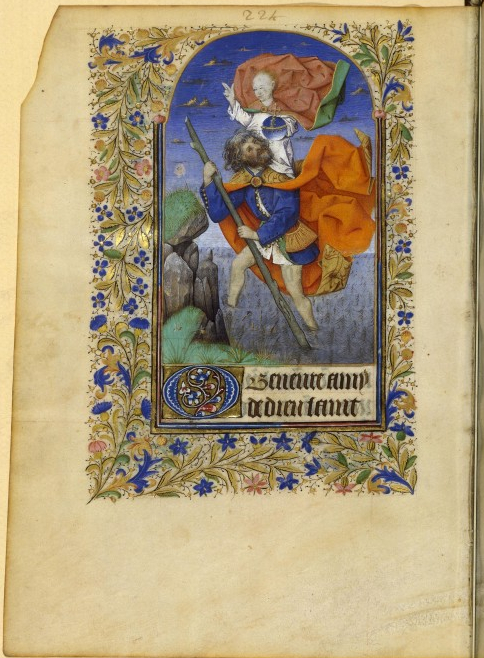 224
O Beneure amy
de dieu saint